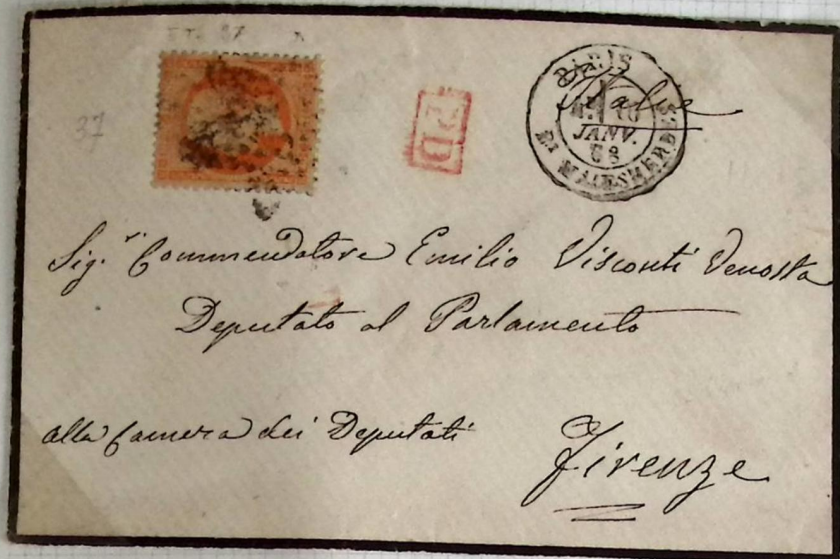 37
PD
PARIS
Italie
JANV.
68
Bd MALESHERBES
Sig.ʳ Commendatore Emilio Visconti Venosta
Deputato al Parlamento
alla Camera dei Deputati
Firenze